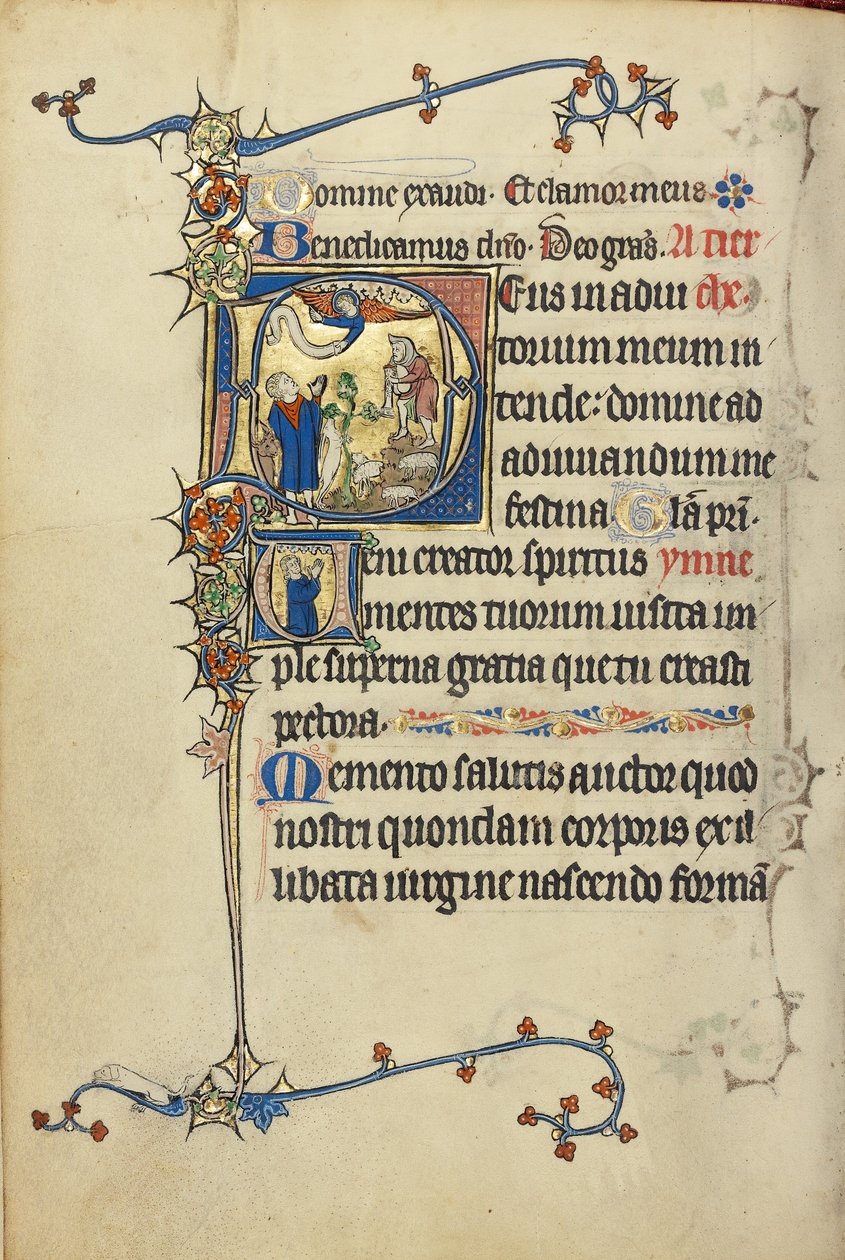 Domine exaudi. Et clamor meus
Benedicamus dn̄o. Deo gra̅s. A tier
Eus in adiu che.
torium meum in
tende: domine ad
adiuuandum me
festina. Gl̄a pr̄i.
Ueni creator spiritus ymne
mentes tuorum uisita im
ple superna gratia que tu creasti
pectora.
Memento salutis auctor quod
nostri quondam corporis ex il
libata uirgine nascendo formā